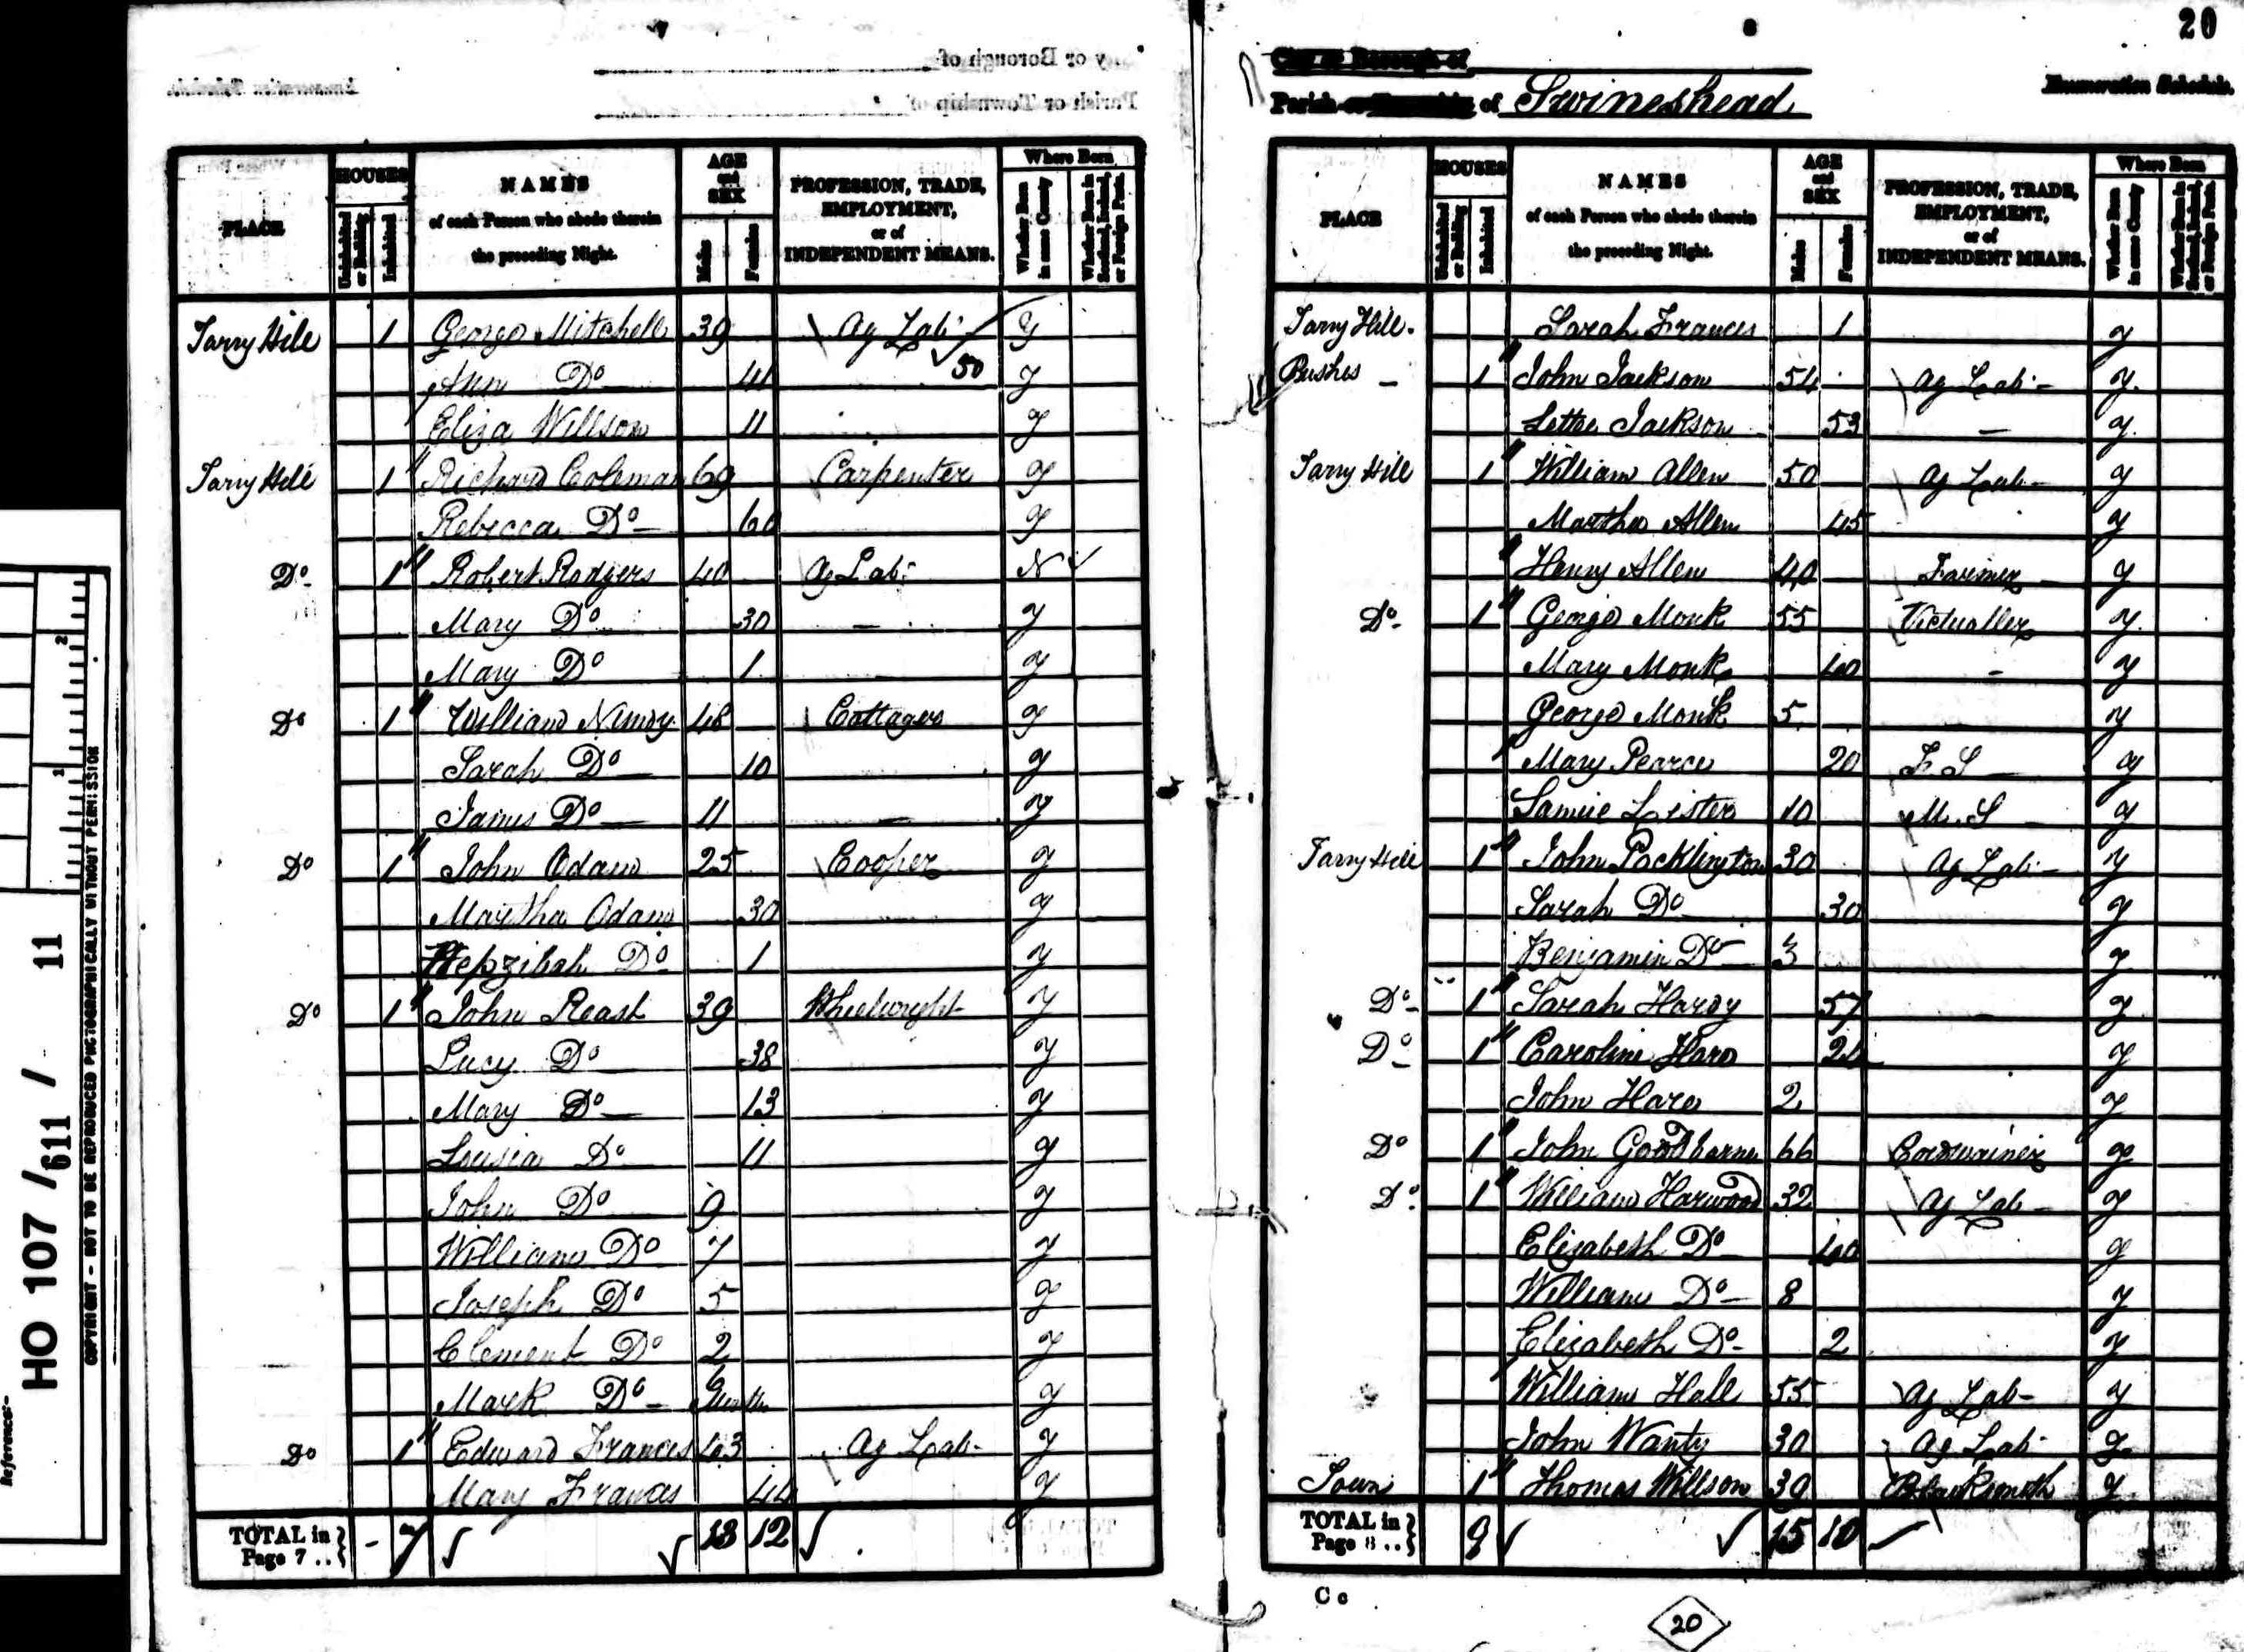 20
City or Borough of
Parish or Township of Swineshead
Enumeration Schedule.
PLACE
HOUSES
Uninhabited or Building
Inhabited
NAMES
of each Person who abode therein
the preceding Night.
AGE and SEX
Males
Females
PROFESSION, TRADE,
EMPLOYMENT,
or of
INDEPENDENT MEANS.
Where Born
Whether Born in same County
Whether Born in Scotland, Ireland, or Foreign Parts.
Tarry Hill 1 George Mitchell 39 Ag Lab Y
50
Ann Do 41 Y
Eliza Willson 11 Y
Tarry Hill 1 Richard Coleman 69 Carpenter Y
Rebecca Do 60 Y
Do 1 Robert Rodgers 40 Ag Lab N
Mary Do 30 — Y
Mary Do 1 Y
Do 1 William 48 Cottager Y
Sarah Do 10 Y
James Do 11 Y
Do 1 John Odam 25 Cooper Y
Martha Odam 30 Y
Hepzibah Do 1 Y
Do 1 John Reast 39 Wheelwright Y
Lucy Do 38 Y
Mary Do 13 Y
Lousia Do 11 Y
John Do 9 Y
William Do 7 Y
Joseph Do 5 Y
Clement Do 2 Y
Mark Do Y
Do 1 Edward Frances 43 Ag Lab Y
Mary Frances 44 Y
TOTAL in Page 7 .. - 7 13 12
PLACE
HOUSES
Uninhabited or Building
Inhabited
NAMES
of each Person who abode therein
the preceding Night.
AGE and SEX
Males
Females
PROFESSION, TRADE,
EMPLOYMENT,
or of
INDEPENDENT MEANS.
Where Born
Whether Born in same County
Whether Born in Scotland, Ireland, or Foreign Parts.
Tarry Hill. Sarah Frances 1 Y
Bushes — 1 John Jackson 54 Ag Lab — Y
Lettee Jackson 53 — Y
Tarry Hill 1 William Allen 50 Ag Lab — Y
Martha Allen 45 Y
Henry Allen 40 Farmer Y
Do 1 George Monk 55 Victualler Y
Mary Monk 40 - Y
George Monk 5 Y
Mary Pearce 20 F S Y
Samuel Lister 10 M. S Y
Tarry Hill 1 John Pocklington 30 Ag Lab — Y
Sarah Do 30 Y
Benjamin Do 3 Y
Do 1 Sarah Hardy 57 Y
Do 1 Caroline Hare Y
John Hare 2 Y
Do 1 John Goodbarne 66 Cordwainer Y
Do 1 William Harwood 32 Ag Lab — Y
Elizabeth Do 40 Y
William Do 8 Y
Elizabeth Do 2 Y
William Hall 55 Ag Lab — Y
John Wanty 30 Ag Lab Y
Town 1 Thomas Willson 39 Blacksmith Y
TOTAL in Page 8 .. 9 15 10
C c
20
Reference:-
HO 107 / 611 / 11
COPYRIGHT - NOT TO BE REPRODUCED PHOTOGRAPHICALLY WITHOUT PERMISSION
1
2